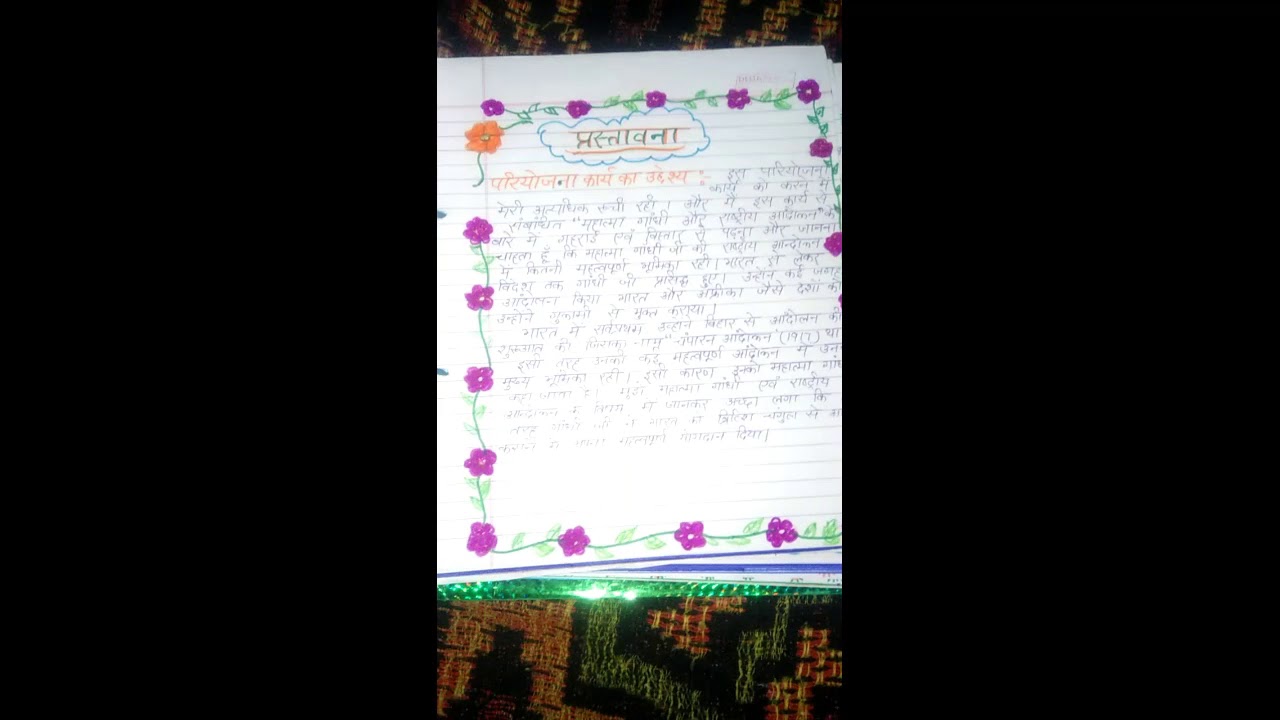 प्रस्तावना
परियोजना कार्य का उद्देश्य :- इस परियोजना
कार्य को करने में
मेरी अत्यधिक रूची रही । और मैं इस कार्य से
संबंधित "महात्मा गांधी और राष्ट्रीय आंदोलन" के
बारे में गहराई एवं विस्तार से पढ़ना और जानना
चाहता हूँ कि महात्मा गांधी जी की राष्ट्रीय आन्दोलन
में कितनी महत्वपूर्ण भूमिका रही। भारत से लेकर
विदेश तक गांधी जी प्रसिद्ध हुए। उन्होंने कई जगह
आंदोलन किया भारत और अफ्रीका जैसे देशों को
उन्होंने गुलामी से मुक्त कराया।
भारत में सर्वप्रथम उन्होंने बिहार से आंदोलन की
शुरुआत की जिसका नाम "चंपारन आंदोलन" (1917) था
इसी तरह उनकी कई महत्वपूर्ण आंदोलन में
मुख्य भूमिका रही। इसी कारण इनको महात्मा
कहा जाता है। महात्मा गांधी एवं राष्ट्रीय
आन्दोलन के विषय में जानकर अच्छा लगा कि
तरह गांधी जी ने भारत को ब्रिटिश चंगुल से
कराने में अपना महत्वपूर्ण योगदान दिया।